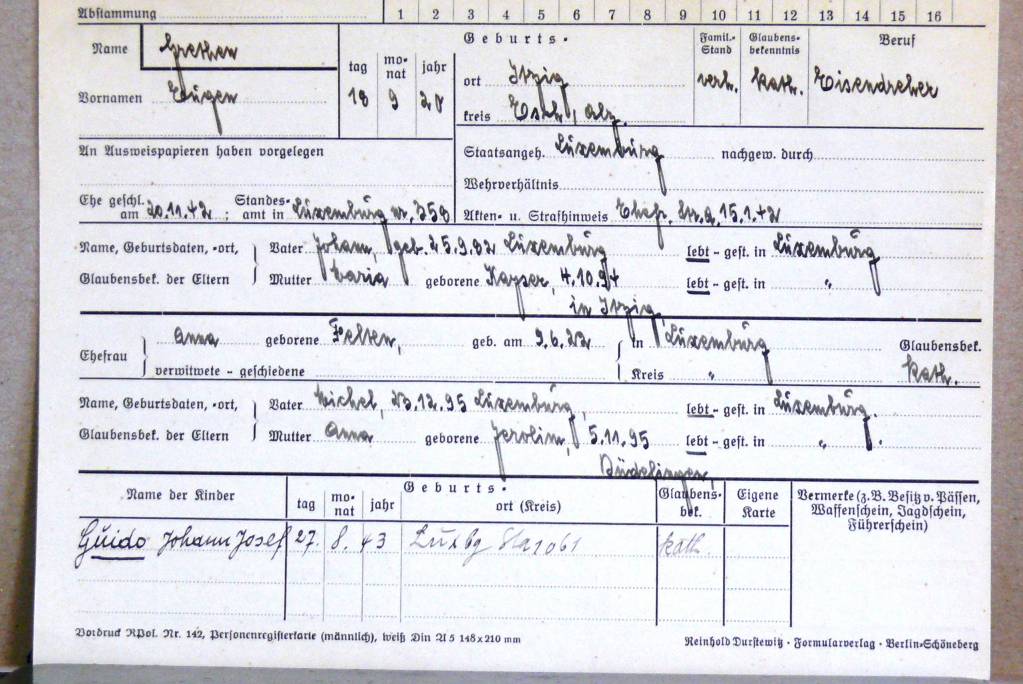 Abstammung 1 2 3 4 5 6 7 8 9 10 11 12 13 14 15 16
Name Grethen
Vornamen Eugen
Geburts-
tag monat jahr
18 9 20
ort Itzig
kreis Esch, Alz.
Famil.-Stand
verh.
Glaubens-bekenntnis
kath.
Beruf
Eisendreher
An Ausweispapieren haben vorgelegen
Staatsangeh. Lüxembürg nachgew. durch
Wehrverhältnis
Ehe geschl. am 20.11.42; Standes-amt in Lüxembürg nr. 358
Akten- u. Strafhinweis 15.1.42
Name, Geburtsdaten, -ort, Vater Johann, geb. 25.9.82 Lüxembürg lebt - gest. in Lüxembürg
Glaubensbek. der Eltern Mutter Maria geborene Kayser, 4.10.94 lebt - gest. in "
in Itzig
Ehefrau Anna geborene Felten, geb. am 9.6.22 in Lüxembürg Glaubensbek.
verwitwete - geschiedene Kreis " kath.
Name, Geburtsdaten, -ort, Vater Michel, 23.12.95 Lüxembürg, lebt - gest. in Lüxembürg.
Glaubensbek. der Eltern Mutter Anna geborene Jerolim, 5.11.95 lebt - gest. in ".
Büdelingen
Name der Kinder
Geburts-
tag monat jahr ort (Kreis)
Glaubens-bek.
Eigene Karte
Vermerke (z.B. Besitz v. Pässen,
Waffenschein, Jagdschein,
Führerschein)
Guido Johann Josef 27. 8. 43 Luxbg kath.
Vordruck RPol. Nr. 142, Personenregisterkarte (männlich), weiß Din A 5 148x210 mm
Reinhold Durstewitz · Formularverlag · Berlin-Schöneberg